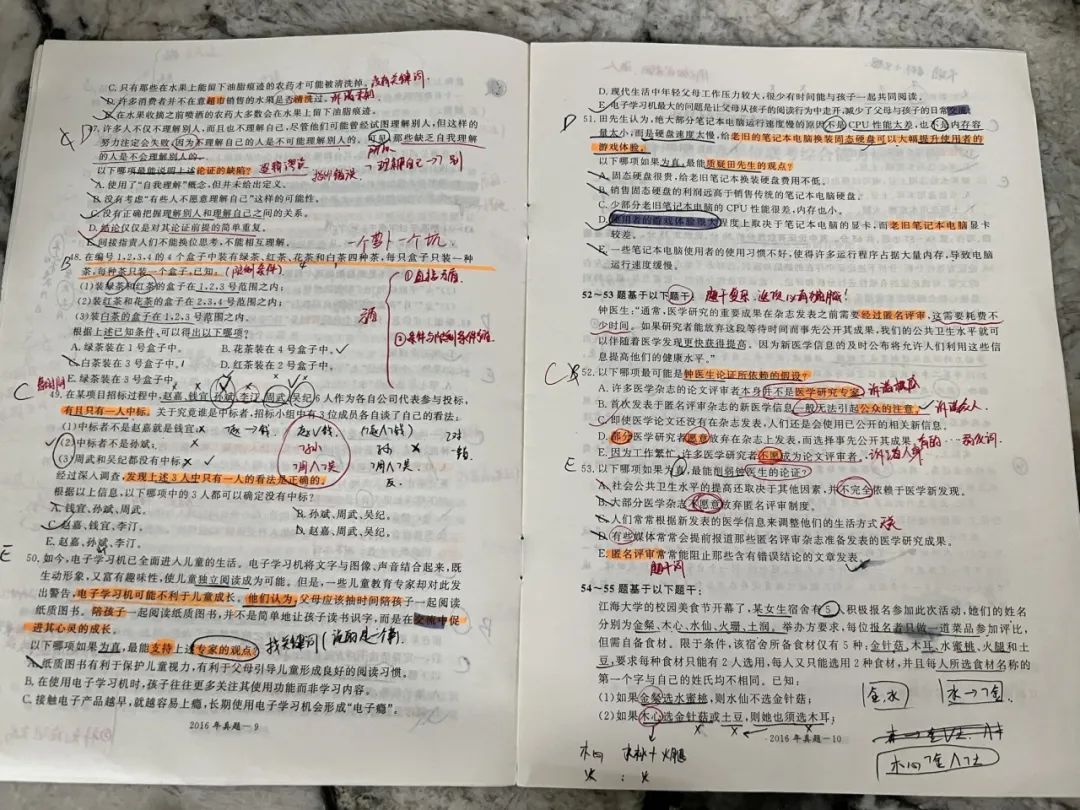 C. 只有那些在水果上能留下油脂痕迹的农药才可能被清洗掉。没有关键词.
D. 许多消费者并不在意超市销售的水果是否清洗过。
E. 在水果收摘之前喷洒的农药大多数会在水果上留下油脂痕迹。
D
47. 许多人不仅不理解别人,而且也不理解自己,尽管他们可能曾经试图理解别人,但这样的
努力注定会失败,因为不理解自己的人是不可能理解别人的。可见,那些缺乏自我理解
的人是不会理解别人的。
以下哪项最能说明上述论证的缺陷?
A. 使用了“自我理解”概念,但并未给出定义。
B. 没有考虑“有些人不愿意理解自己”这样的可能性。
C. 没有正确把握理解别人和理解自己之间的关系。
D. 结论仅仅是对其论证前提的简单重复。
E. 间接指责人们不能换位思考,不能相互理解。
一个萝卜一个坑
B
48. 在编号1、2、3、4的4个盒子中装有绿茶、红茶、花茶和白茶四种茶,每只盒子只装一种
茶,每种茶只装一个盒子,已知: (限制条件)
(1)装绿茶和红茶的盒子在1、2、3号范围之内;
(2)装红茶和花茶的盒子在2、3、4号范围之内;
(3)装白茶的盒子在1、2、3号范围之内。
根据上述已知条件,可以得出以下哪项?
A. 绿茶装在1号盒子中。 B. 花茶装在4号盒子中。
C. 白茶装在3号盒子中。 D. 红茶装在2号盒子中。
E. 绿茶装在3号盒子中。
C
49. 在某项目招标过程中,赵嘉、钱宜、孙斌、李汀、周武、吴纪6人作为各自公司代表参与投标,
有且只有一人中标。关于究竟谁是中标者,招标小组中有3位成员各自谈了自己的看法:
(1)中标者不是赵嘉就是钱宜;
(2)中标者不是孙斌;
(3)周武和吴纪都没有中标。
经过深入调查,发现上述3人中只有一人的看法是正确的。
根据以上信息,以下哪项中的3人都可以确定没有中标?
A. 钱宜、孙斌、周武。 B. 孙斌、周武、吴纪。
C. 赵嘉、钱宜、李汀。 D. 赵嘉、周武、吴纪。
E. 赵嘉、孙斌、李汀。
E
50. 如今,电子学习机已全面进入儿童的生活。电子学习机将文字与图像、声音结合起来,既
生动形象,又富有趣味性,使儿童独立阅读成为可能。但是,一些儿童教育专家却对此发
出警告,电子学习机可能不利于儿童成长。他们认为,父母应该抽时间陪孩子一起阅读
纸质图书。陪孩子一起阅读纸质图书,并不是简单地让孩子读书识字,而是在交流中促
进其心灵的成长。
以下哪项如果为真,最能支持上述专家的观点? 找关键词
A. 纸质图书有利于保护儿童视力,有利于父母引导儿童形成良好的阅读习惯。
B. 在使用电子学习机时,孩子往往更多关注其使用功能而非学习内容。
C. 接触电子产品越早,就越容易上瘾,长期使用电子学习机会形成“电子瘾”。
2016年真题—9
D. 现代生活中年轻父母工作压力较大,很少有时间能与孩子一起共同阅读。
E. 电子学习机最大的问题是让父母从孩子的阅读行为中走开,减少了父母与孩子的日常交流。
D
51. 田先生认为,绝大部分笔记本电脑运行速度慢的原因不是CPU性能太差,也不是内存容
量太小,而是硬盘速度太慢,给老旧的笔记本电脑换装固态硬盘可以大幅提升使用者的
游戏体验。
以下哪项如果为真,最能质疑田先生的观点?
A. 固态硬盘很贵,给老旧笔记本换装硬盘费用不低。
B. 销售固态硬盘的利润远高于销售传统的笔记本电脑硬盘。
C. 少部分老旧笔记本电脑的CPU性能很差,内存也小。
D. 使用者的游戏体验很大程度上取决于笔记本电脑的显卡,而老旧笔记本电脑显卡
较差。
E. 一些笔记本电脑使用者的使用习惯不好,使得许多运行程序占据大量内存,导致电脑
运行速度缓慢。
52~53题基于以下题干:
钟医生:“通常,医学研究的重要成果在杂志发表之前需要经过匿名评审,这需要耗费不
少时间。如果研究者能放弃这段等待时间而事先公开其成果,我们的公共卫生水平就可
以伴随着医学发现更快获得提高。因为新医学信息的及时公布将允许人们利用这些信
息提高他们的健康水平。”
52. 以下哪项最可能是钟医生论证所依赖的假设?
A. 许多医学杂志的论文评审者本身并不是医学研究专家。
B. 首次发表于匿名评审杂志的新医学信息一般无法引起公众的注意。
C. 即使医学论文还没有在杂志发表,人们还是会使用已公开的相关新信息。
D. 部分医学研究者愿意放弃在杂志上发表,而选择事先公开其成果。
E. 因为工作繁忙,许多医学研究者不愿成为论文评审者。
E
53. 以下哪项如果为真,最能削弱钟医生的论证?
A. 社会公共卫生水平的提高还取决于其他因素,并不完全依赖于医学新发现。
B. 大部分医学杂志不愿意放弃匿名评审制度。
C. 人们常常根据新发表的医学信息来调整他们的生活方式。
D. 有些媒体常常会提前报道那些匿名评审杂志准备发表的医学研究成果。
E. 匿名评审常常能阻止那些含有错误结论的文章发表。
题干词
54~55题基于以下题干:
江海大学的校园美食节开幕了,某女生宿舍有5人积极报名参加此次活动,她们的姓名
分别为金粲、木心、水仙、火珊、土润。举办方要求,每位报名者只做一道菜品参加评比,
但需自备食材。限于条件,该宿舍所备食材仅有5种:金针菇、木耳、水蜜桃、火腿和土
豆,要求每种食材只能有2人选用,每人又只能选用2种食材,并且每人所选食材名称的
第一个字与自己的姓氏均不相同。已知:
(1)如果金粲选水蜜桃,则水仙不选金针菇;
(2)如果木心选金针菇或土豆,则她也须选木耳;
2016年真题—10